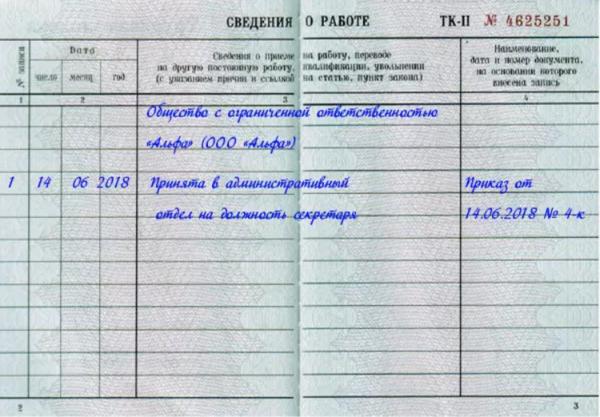 СВЕДЕНИЯ О РАБОТЕ ТК-II № 4625251
№ записи
Дата
число месяц год
Сведения о приеме на работу, переводе
на другую постоянную работу, квалификации, увольнении
(с указанием причин и ссылкой на статью, пункт закона)
Наименование,
дата и номер документа,
на основании которого
внесена запись
1 2 3 4
Общество с ограниченной ответственностью
«Альфа» (ООО «Альфа»)
1 14 06 2018 Принята в административный Приказ от
отдел на должность секретаря 14.06.2018 № 4-к
2 3